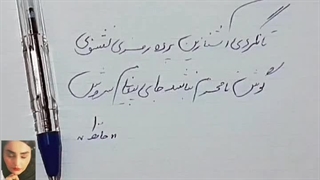 تا نگردی آشنا زین پرده رمزی نشنوی
گوش نامحرم نباشد جای پیغام سروش
"حافظ"